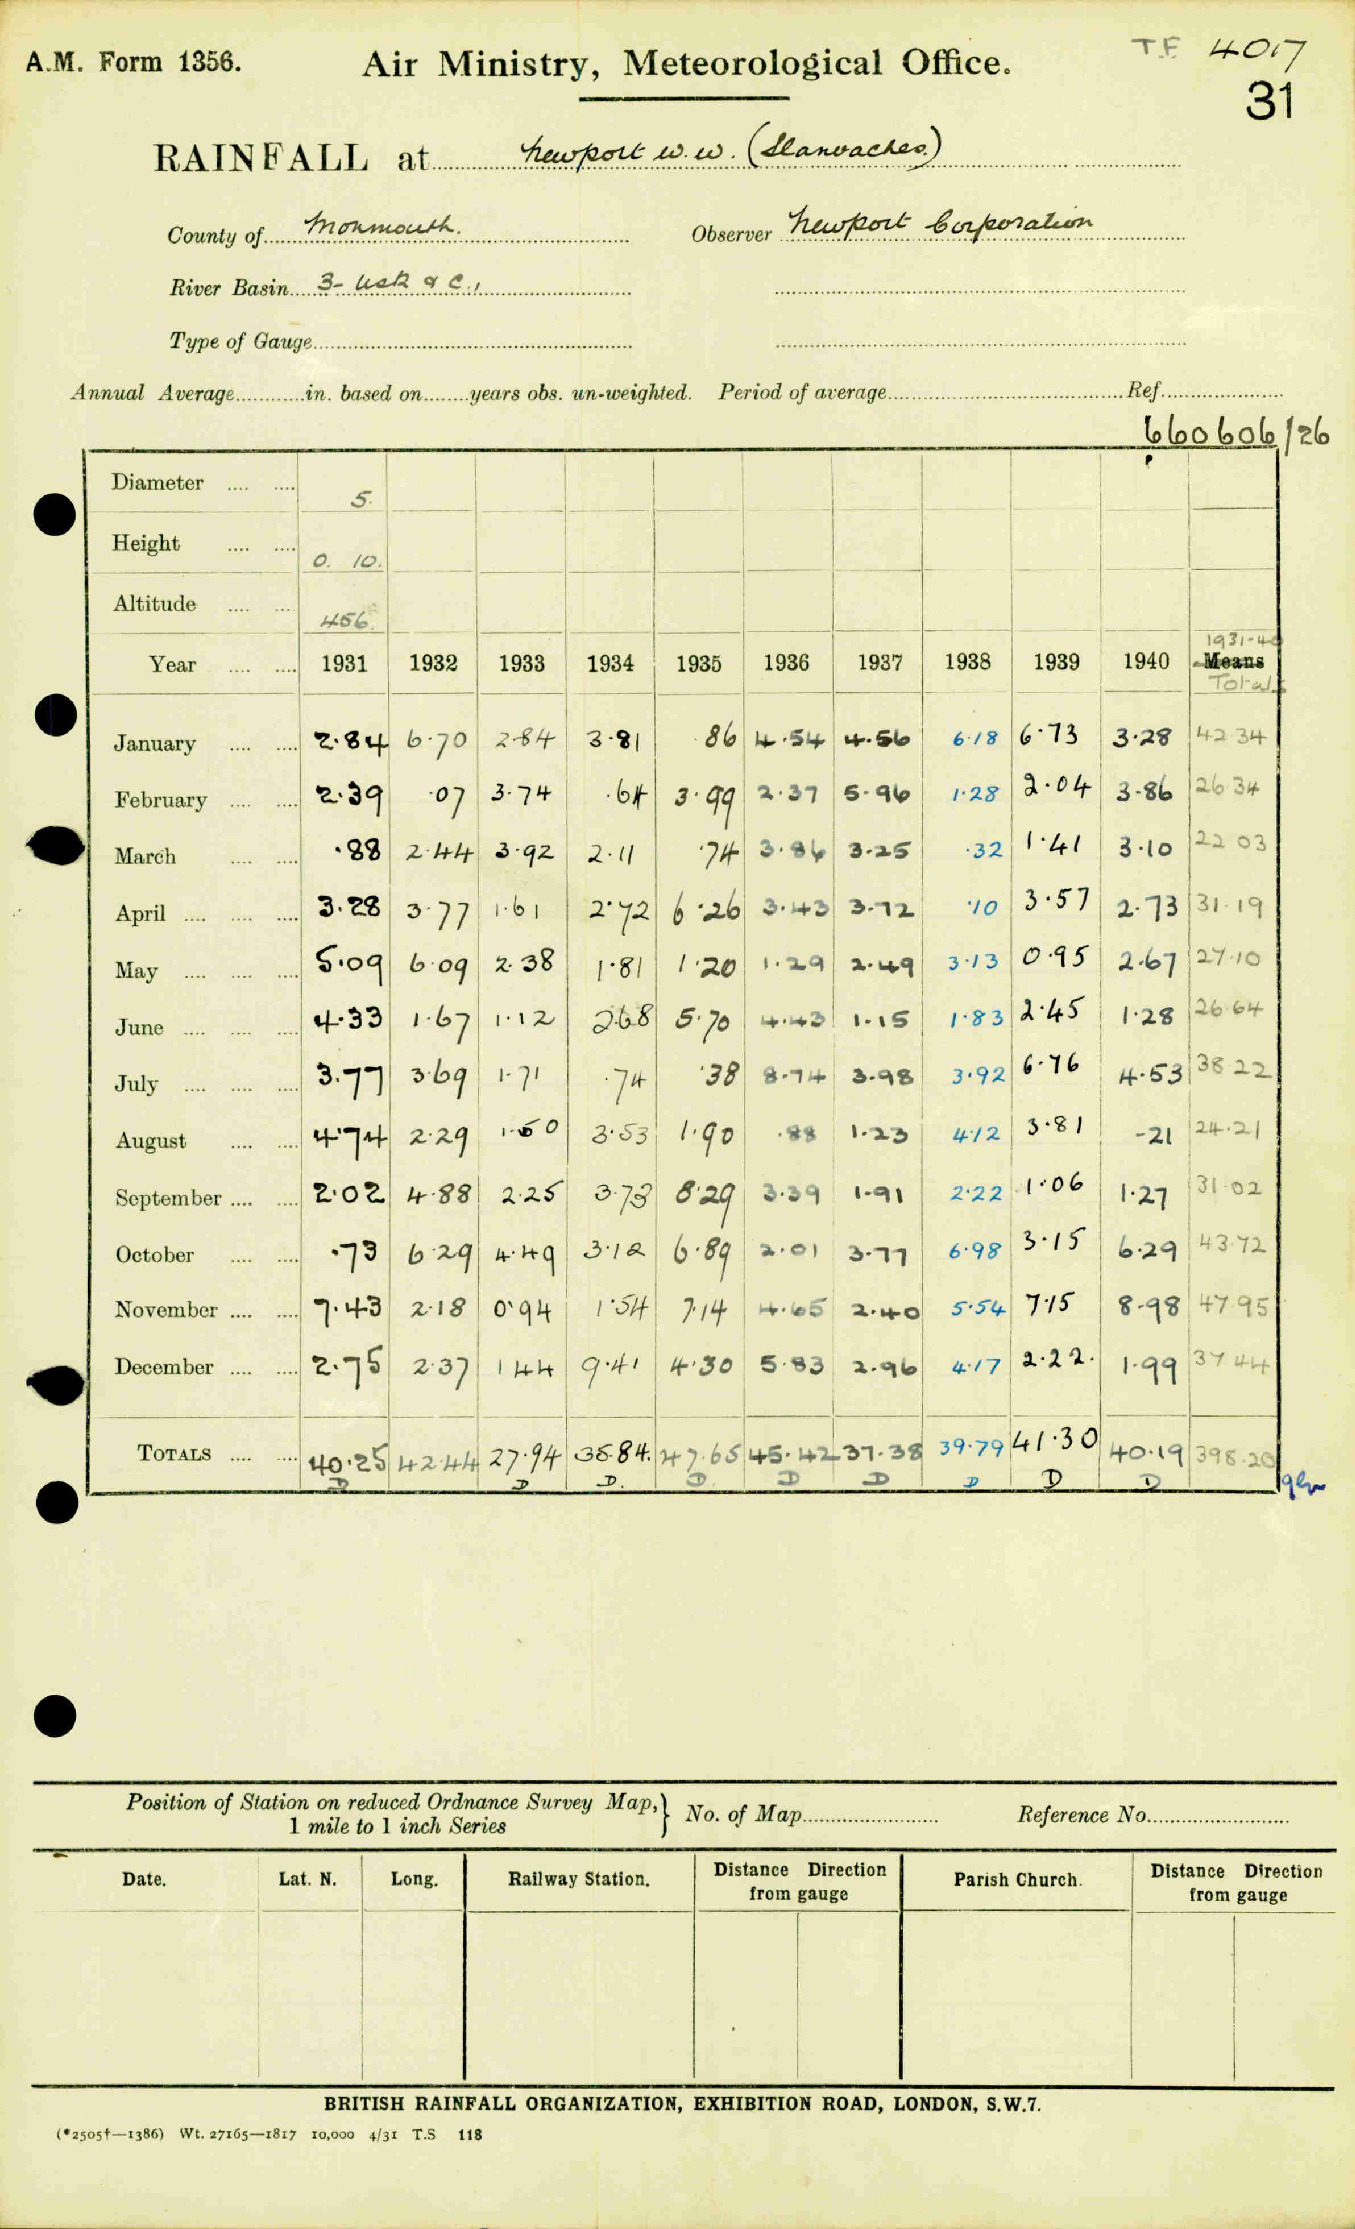 A.M. Form 1356.
Air Ministry, Meteorological Office.
T.F. 4017
31
RAINFALL at Newport W.W. (Llanvaches)
County of Monmouth. Observer Newport Corporation
River Basin 3- Usk & C.,
Type of Gauge
Annual Average in. based on years obs. un-weighted. Period of average Ref.
660606/26
Diameter 5.
Height 0. 10.
Altitude 456
1931-40
Year 1931 1932 1933 1934 1935 1936 1937 1938 1939 1940 Means
Totals
January 2.84 6.70 2.84 3.81 .86 4.54 4.56 6.18 6.73 3.28 42.34
February 2.39 .07 3.74 .64 3.99 2.37 5.96 1.28 2.04 3.86 26.34
March .88 2.44 3.92 2.11 .74 3.86 3.25 .32 1.41 3.10 22.03
April 3.28 3.77 1.61 2.72 6.26 3.43 3.72 .10 3.57 2.73 31.19
May 5.09 6.09 2.38 1.81 1.20 1.29 2.49 3.13 0.95 2.67 27.10
June 4.33 1.67 1.12 2.68 5.70 4.43 1.15 1.83 2.45 1.28 26.64
July 3.77 3.69 1.71 .74 .38 8.74 3.98 3.92 6.76 4.53 38.22
August 4.74 2.29 1.50 3.53 1.90 .88 1.23 4.12 3.81 .21 24.21
September 2.02 4.88 2.25 3.73 8.29 3.39 1.91 2.22 1.06 1.27 31.02
October .73 6.29 4.49 3.12 6.89 2.01 3.77 6.98 3.15 6.29 43.72
November 7.43 2.18 0.94 1.54 7.14 4.65 2.40 5.54 7.15 8.98 47.95
December 2.75 2.37 1.44 9.41 4.30 5.83 2.96 4.17 2.22. 1.99 37.44
TOTALS 40.25 42.44 27.94 35.84. 47.65 45.42 37.38 39.79 41.30 40.19 398.20
D D D. D. D D D D D
Position of Station on reduced Ordnance Survey Map,
1 mile to 1 inch Series
No. of Map
Reference No.
Date. Lat. N. Long. Railway Station. Distance from gauge Direction Parish Church. Distance from gauge Direction
BRITISH RAINFALL ORGANIZATION, EXHIBITION ROAD, LONDON, S.W.7.
(*2505†—1386) Wt. 27165—1817 10,000 4/31 T.S 118